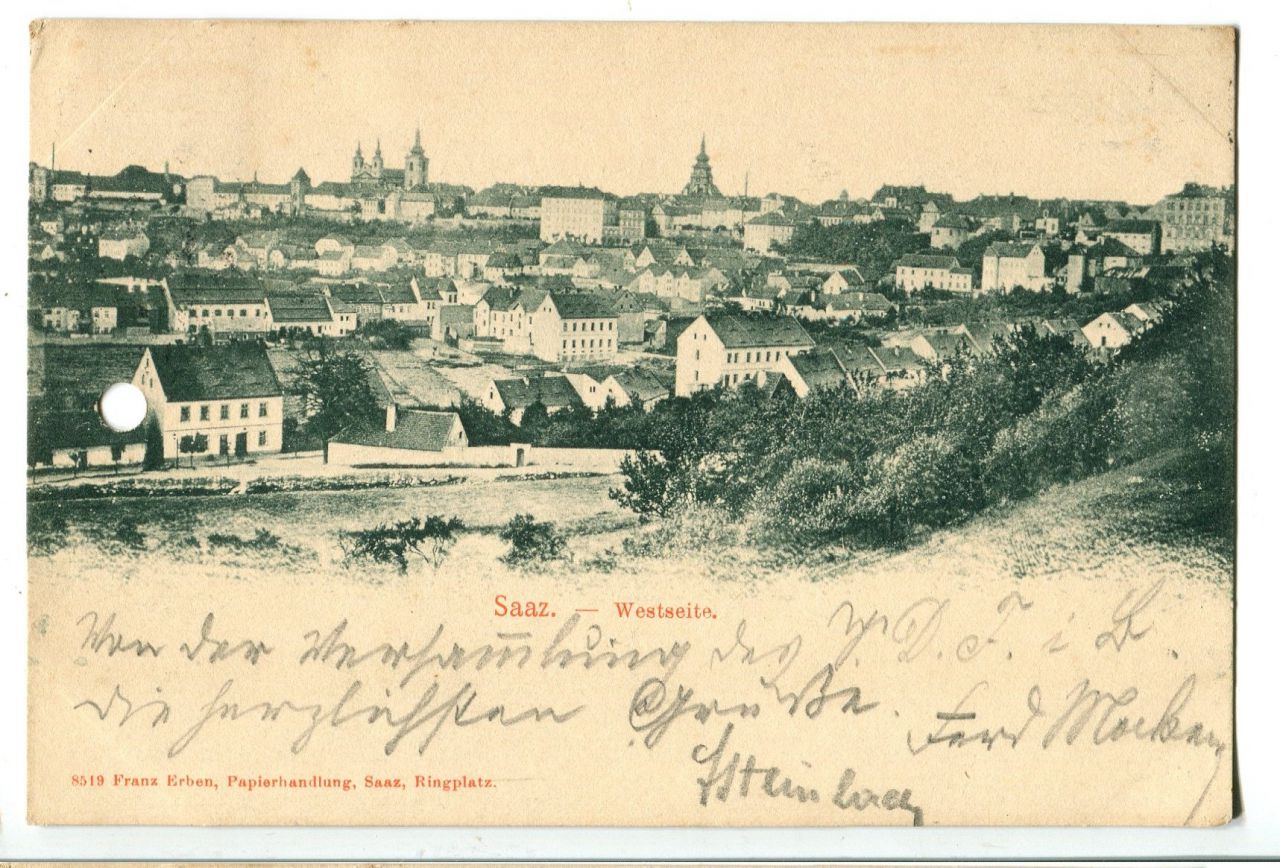 Saaz. — Westseite.
Von der Versam̅lung des V. D. T. i B.
die herzlichsten Grüße.
Ferd
Steinbach
8519 Franz Erben, Papierhandlung, Saaz, Ringplatz.